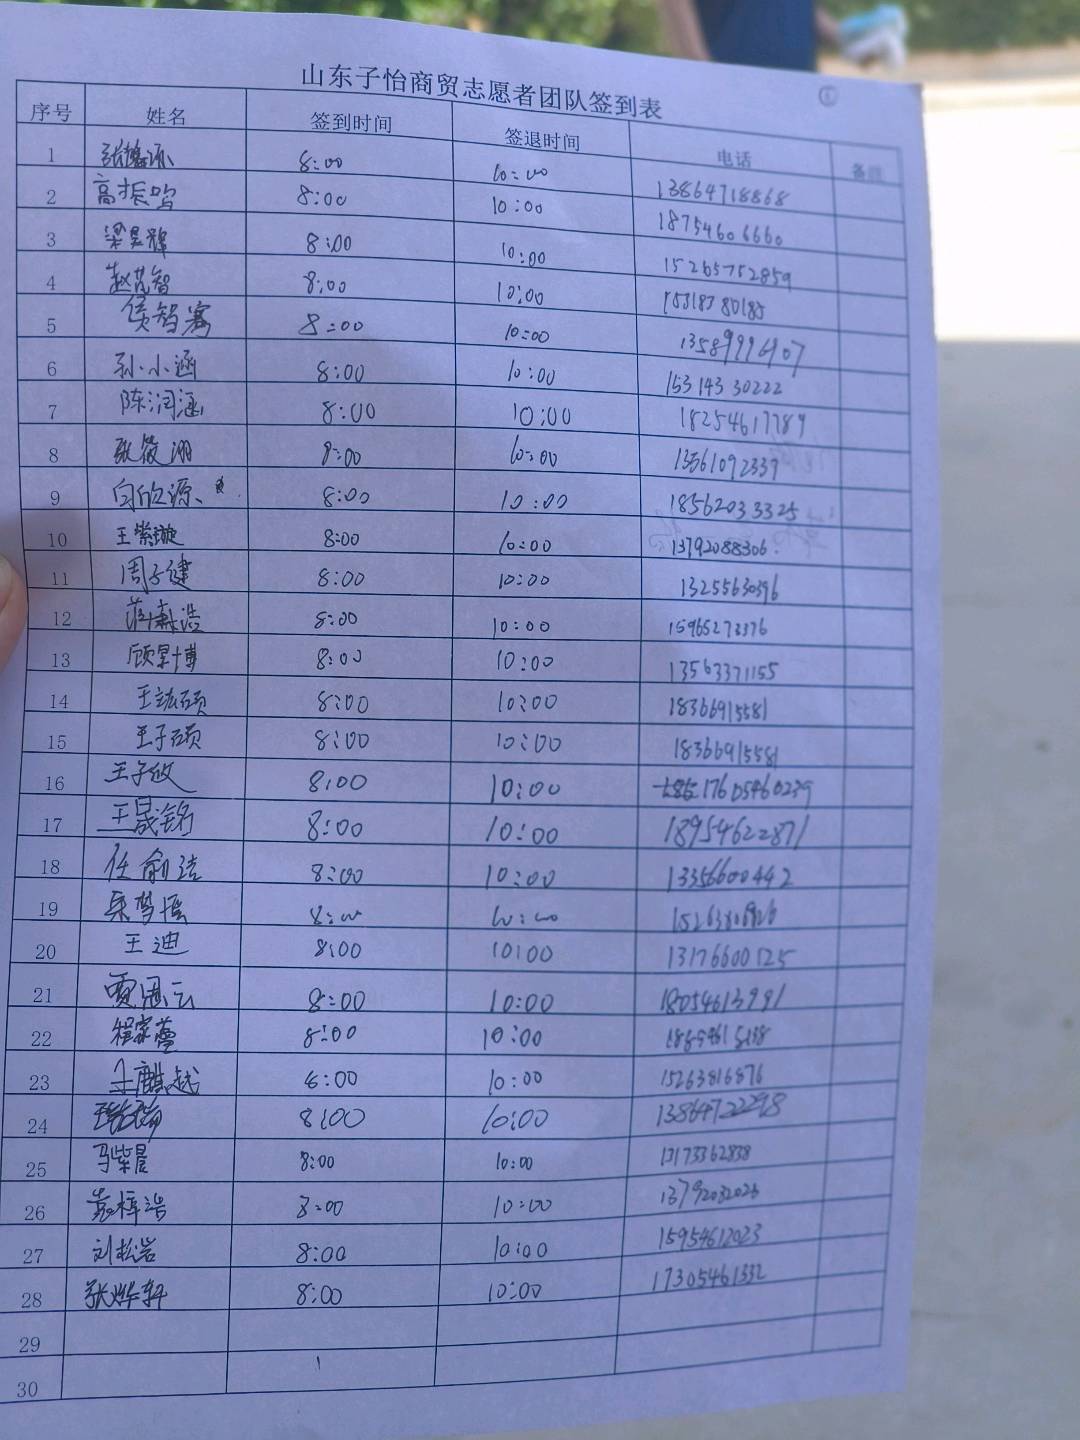 山东子怡商贸志愿者团队签到表
①
序号 姓名 签到时间 签退时间 电话 备注
1 8:00 10:00 13864718868
2 高振鸣 8:00 10:00 18754606660
3 梁昊辉 8:00 10:00 15265752859
4 赵茂智 8:00 10:00 15318780185
5 侯智骞 8:00 10:00 13589996907
6 孙小涵 8:00 10:00 15314330222
7 陈润涵 8:00 10:00 18254617789
8 张筱湘 8:00 10:00 13561092339
9 向欣源 8:00 10:00 18562033325
10 王紫璇 8:00 10:00 13792088306
11 周子健 8:00 10:00 13255630396
12 8:00 10:00 15965273376
13 顾昊博 8:00 10:00 13563371155
14 王竑硕 8:00 10:00 18366915581
15 王子硕 8:00 10:00 18366915581
16 王子政 8:00 10:00 17605460239
17 王晟铭 8:00 10:00 18954622871
18 任俞洁 8:00 10:00 13356600442
19 8:00 10:00
20 王迪 8:00 10:00 13176600125
21 贾思云 8:00 10:00 18054613991
22 程家萱 8:00 10:00
23 王麒越 8:00 10:00 15263816876
24 8:00 10:00 13864722298
25 马紫晨 8:00 10:00 13173362838
26 袁梓浩 8:00 10:00 13792032023
27 刘松岩 8:00 10:00 15954612023
28 张烨轩 8:00 10:00 17305461332
29
30